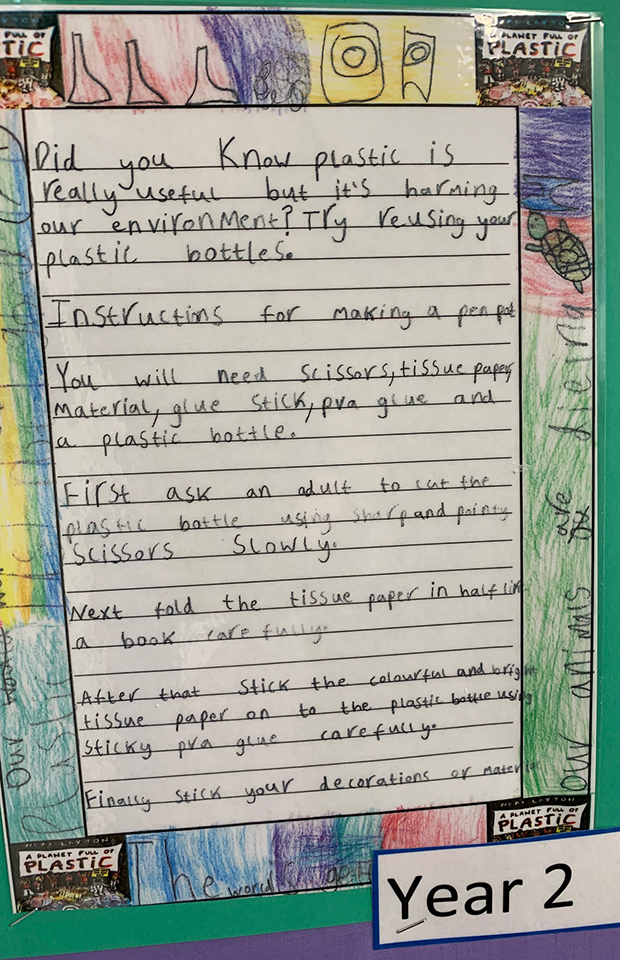 FULL OF
TIC
A PLANET FULL OF
PLASTIC
Did you Know plastic is
really useful but it's harming
our environment? Try reusing your
plastic bottles.
Instructins for making a pen pot
You will need scissors, tissue paper,
Material, glue stick, pva glue and
a plastic bottle.
First ask an adult to cut the
plastic bottle using sharp and pointy
scissors Slowly.
Next fold the tissue paper in half lik
a book carefully.
After that stick the colourful and bright
tissue paper on to the plastic bottle using
sticky pva glue carefully.
Finally stick your decorations or material
our animals are dieing
NEAL LAYTON
A PLANET FULL OF
PLASTIC
The world is
NEAL LAYTON
A PLANET FULL OF
PLASTIC
Year 2